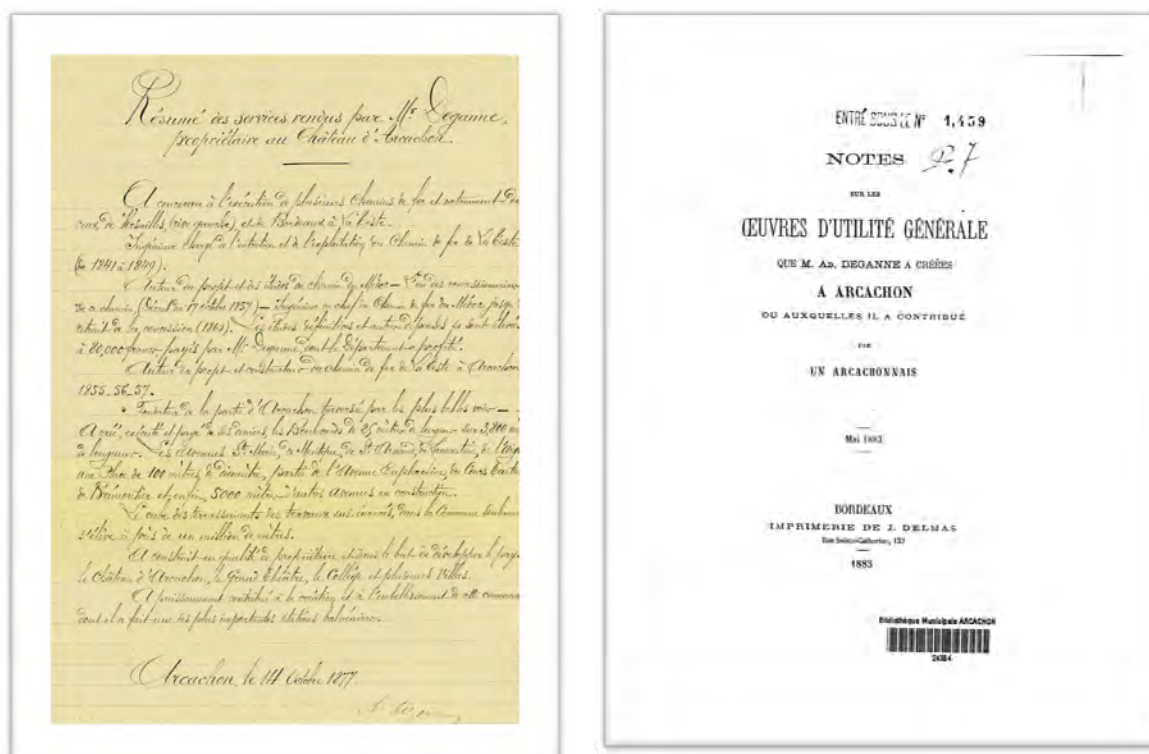 Résumé des services rendus par Mr Deganne,
propriétaire au Château d'Arcachon.
A concouru à l'exécution de plusieurs Chemins de fer et notamment de
ceux de Versailles, (rive gauche), et de Bordeaux à La Teste.
Ingénieur chargé de l'entretien et de l'exploitation du Chemin de fer de La Teste
(de 1841 à 1849).
Auteur du projet et des études du chemin du Médoc — L'un des concessionnaires
de ce chemin (Décret du 17 octobre 1857) — Ingénieur en chef du Chemin de fer du Médoc jusqu'
retrait de la concession (1863). Les études définitives et autres dépenses se sont élevées
à 80,000 francs payés par Mr Deganne, dont le Département a profité.
Auteur du projet et constructeur du chemin de fer de La Teste à Arcachon
1855-56-57.
Fondateur de la partie d'Arcachon traversée par les plus belles voies —
A créé, exécuté et payé de ses deniers, les Boulevards de 25 mètres de largeur sur 3,800 m
de longueur. Les Avenues Ste Marie, de Mentque, de St Arnaud, de Lamartine, de
une Place de 100 mètres de diamètre, partie de l'Avenue Euphrosine, du Cours
de Brémontier et enfin, 5000 mètres d'autres avenues en construction.
Le cube des terrassements des travaux sus énoncés, dans la Commune seulement
s'élève à près de un million de mètres.
A construit en qualité de propriétaire et dans le but de développer le pays
le Château d'Arcachon, le Grand Théâtre, le Collège et plusieurs Villas.
A puissamment contribué à la création et à l'embellissement de cette commune
dont il a fait une des plus importantes stations balnéaires.
Arcachon, le 14 Octobre 1877.
ENTRÉ SOUS LE N° 1,459
NOTES
SUR LES
ŒUVRES D'UTILITÉ GÉNÉRALE
QUE M. AD. DEGANNE A CRÉÉES
A ARCACHON
OU AUXQUELLES IL A CONTRIBUÉ
PAR
UN ARCACHONNAIS
Mai 1883
BORDEAUX
IMPRIMERIE DE J. DELMAS
Rue Sainte-Catherine, 137
1883
Bibliothèque Municipale ARCACHON